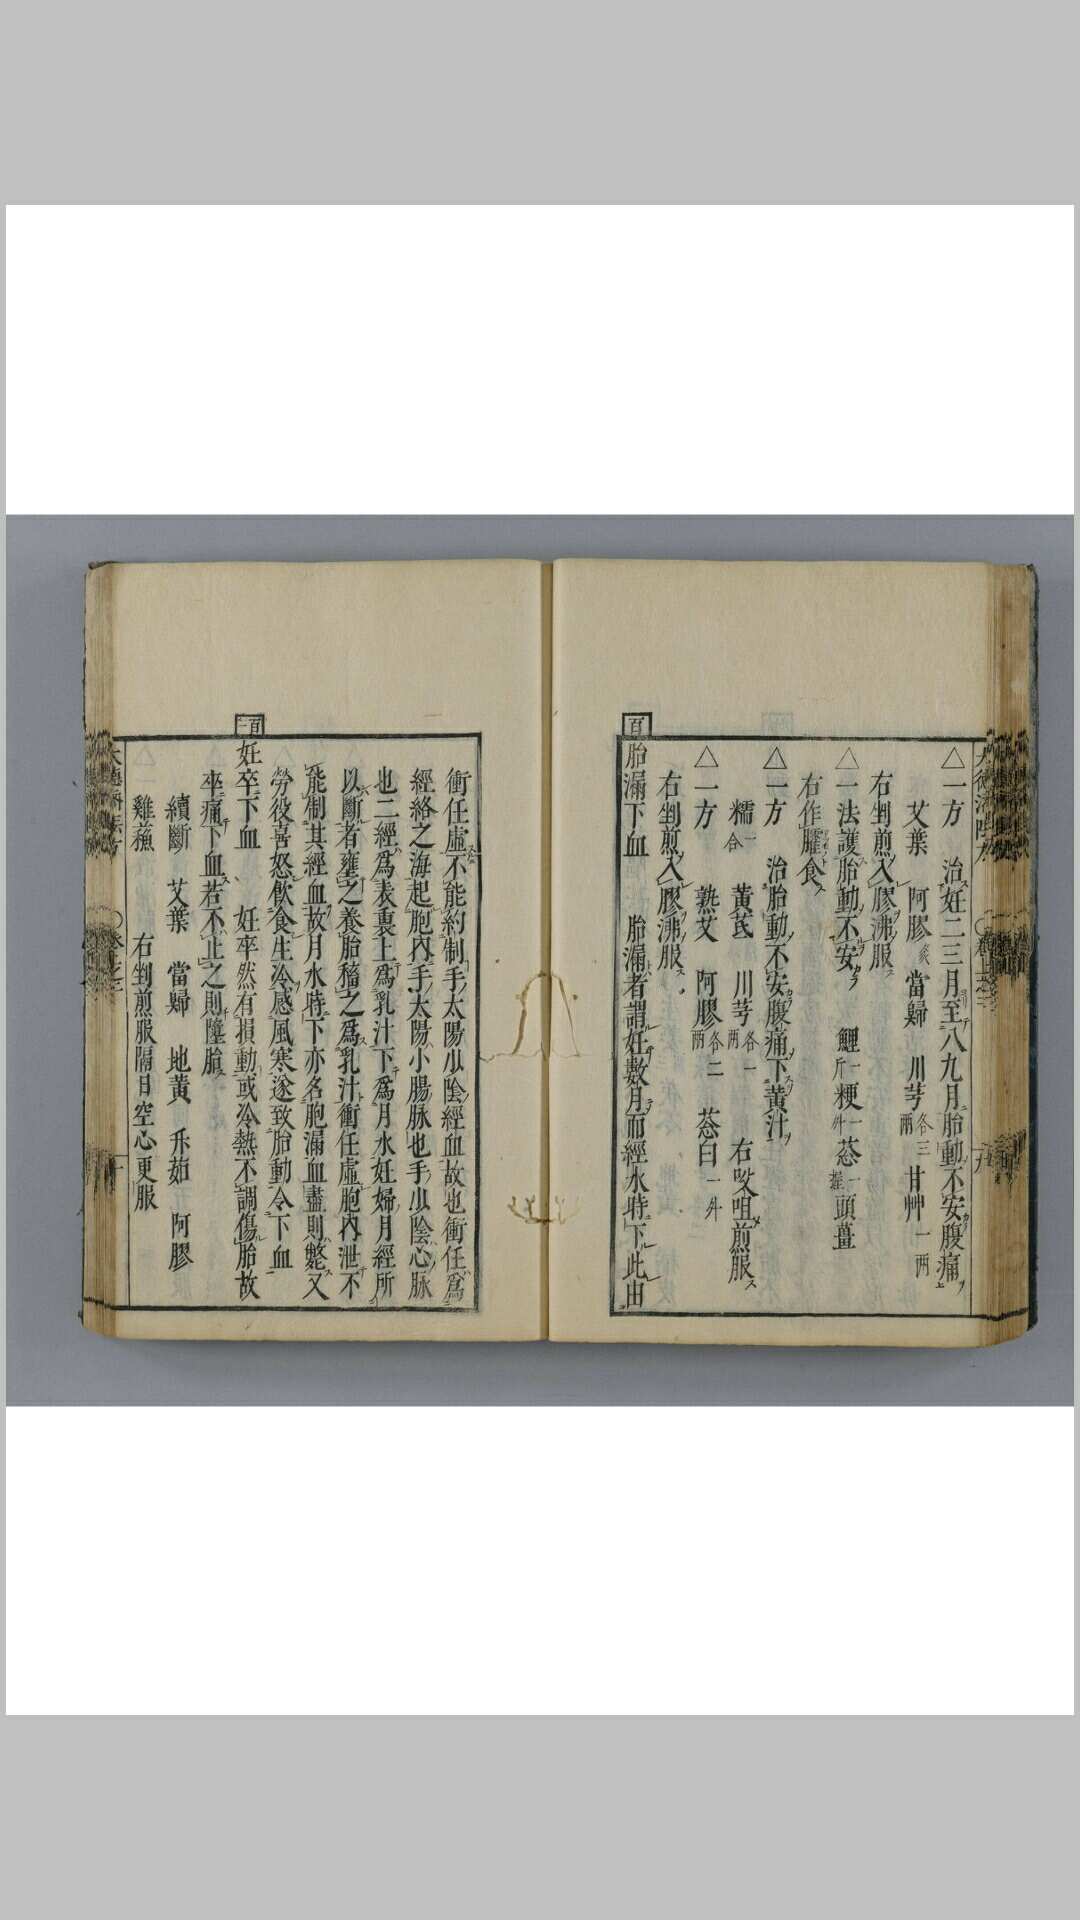 △一方　治妊二三月至八九月胎動不安腹痛
艾葉　阿膠炙　當歸　川芎各三兩　甘艸一両
右剉煎入膠沸服
△一法護胎動不安　鯉一斤　粳一升　葱一握　頭薑
右作臛食
△一方　治胎動不安腹痛下黄汁
糯一合　黄芪　川芎各一兩　右㕮咀煎服
△一方　熟艾　阿膠各二兩　葱白一升
右剉煎入膠沸服
百
胎漏下血　胎漏者謂妊數月而經水時下此由
衝任虛不能約制手太陽少陰經血故也衝任爲
經絡之海起胞内手太陽小腸脉也手少陰心脉
也二經爲表裏上爲乳汁下爲月水妊婦月經所
以斷者壅之養胎穡之爲乳汁衝任虛胞内泄不
能制其經血故月水時下亦名胞漏血盡則斃又
勞役喜怒飮食生冷感風寒遂致胎動令下血
百一
妊卒下血　妊卒然有損動或冷熱不調傷胎故
卒痛下血若不止之則墮胎
續斷　艾葉　當歸　地黄　竹茹　阿膠
雞蘓　右剉煎服隔日空心更服